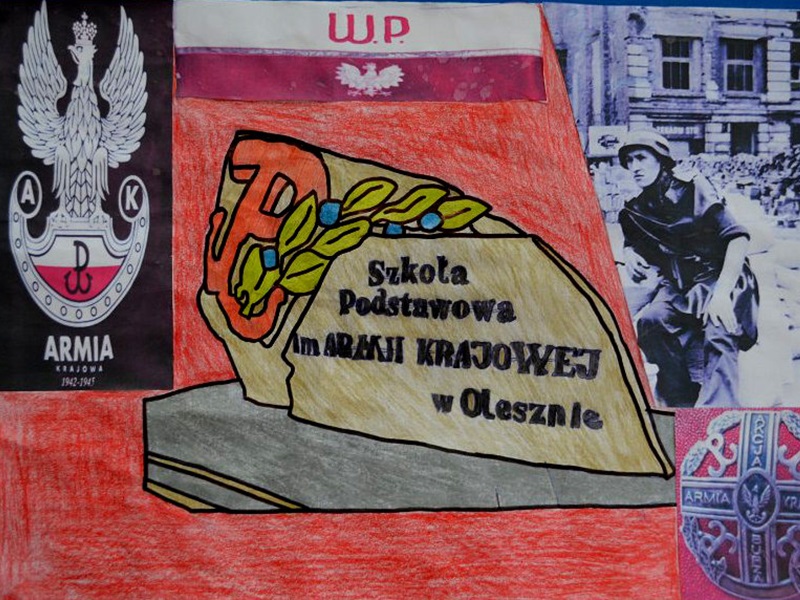 W.P.
A K
ARMIA
KRAJOWA
1942-1945
Szkoła
Podstawowa
im ARMII KRAJOWEJ
w Olesznie
AKCJA
ARMIA
BURZA